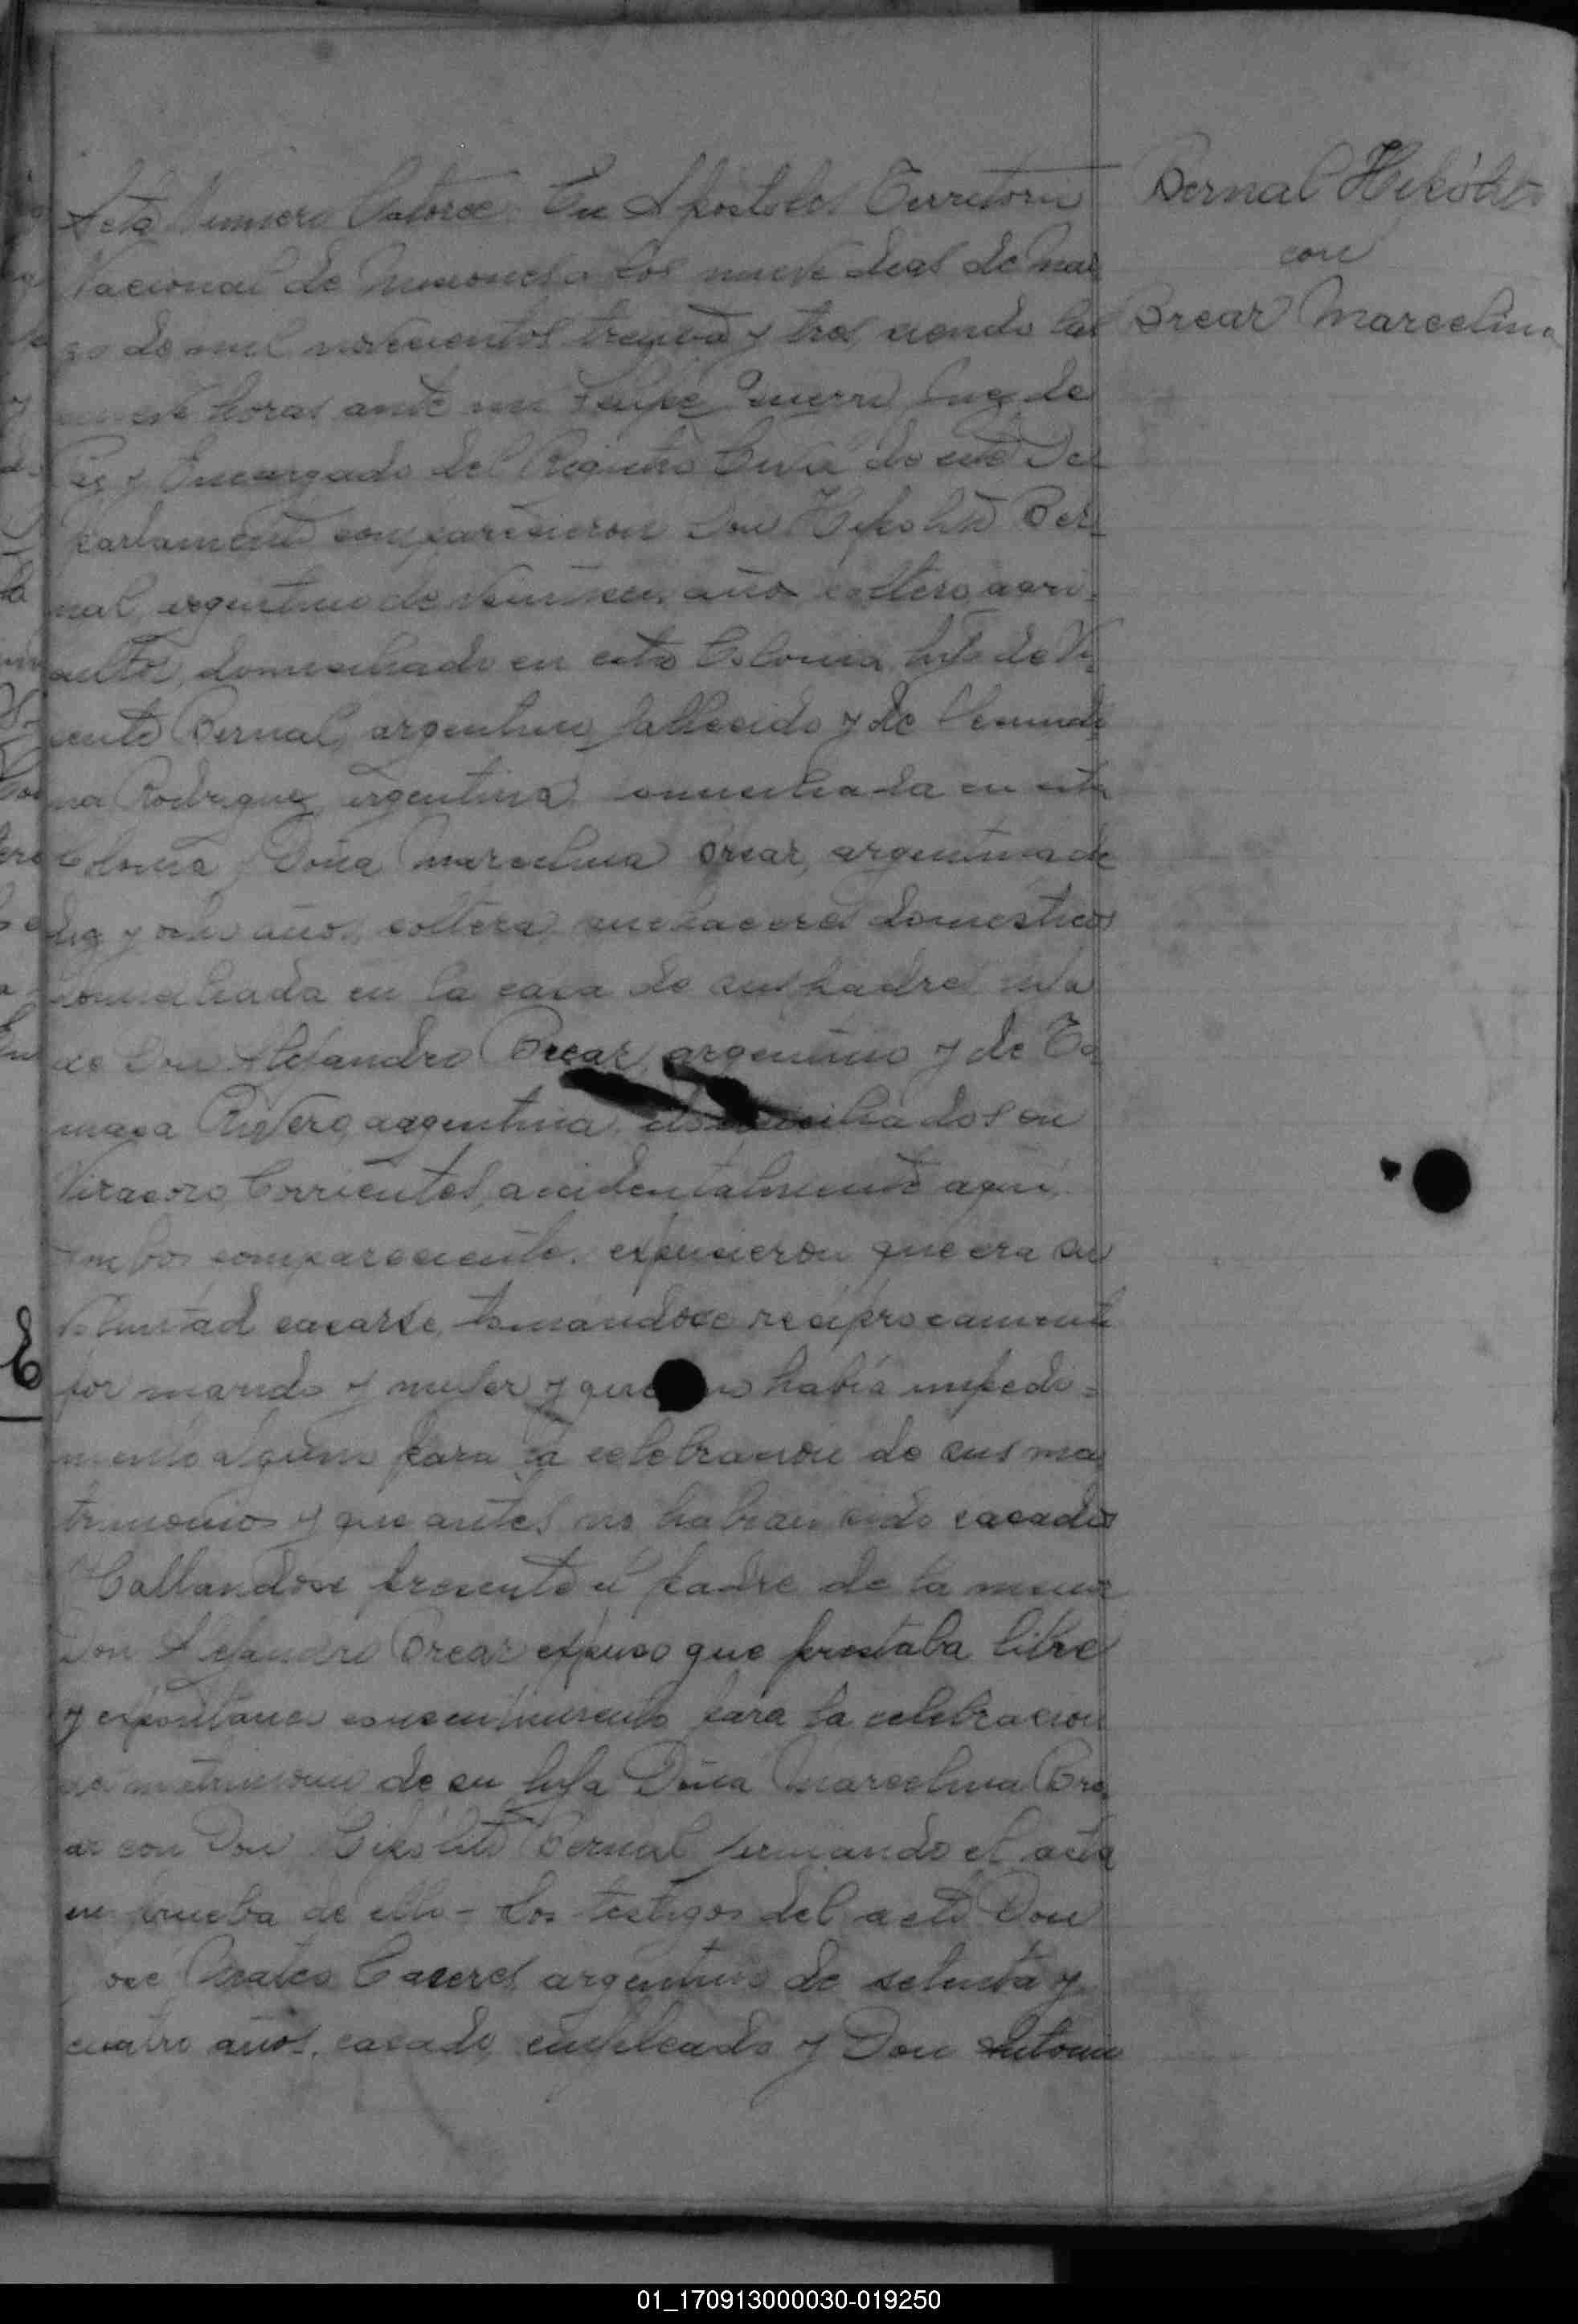 Bernal Hipólito
con
Brear Marcelina
Acta Numero Catorce En Apostoles Territorio
Nacional de Misiones a los nueve dias de mar
zo de mil novecientos treinta y tres, siendo las
nueve horas ante mi Felipe Guerra Juez de
Paz y Encargado del Registro Civil de este De
partamento comparecieron Don Hipolito Ber
nal, argentino de años soltero, agri-
cultor, domiciliado en esta Colonia, hijo de Vi
cente Bernal, argentino, fallecido y de
na Rodriguez, argentina, domiciliada en esta
Colonia y Doña Marcelina Brear, argentina de
diez y ocho años, soltera, quehaceres domesticos
domiciliada en la casa de sus padres, hija
de Don Alejandro Brear, argentino y de To
masa Rivero, argentina, domiciliados en
Virasoro, Corrientes, accidentalmente aqui,
Ambos comparecientes expusieron que era su
voluntad casarse, tomandose reciprocamente
por marido y mujer y que no habia impedi-
mento alguno para la celebracion de sus ma
trimonios y que antes no habian sido casados
Hallandose presente el padre de la menor
Don Alejandro Brear expuso que prestaba libre
y expontaneo consentimiento para la celebracion
del matrimonio de su hija Doña Marcelina Bre
ar con Don Hipólito Bernal firmando el acta
en prueba de ello - Los testigos del acto Don
José Mateo Caceres argentino de setenta y
cuatro años, casado, empleado y Don Antonio
01_170913000030-019250